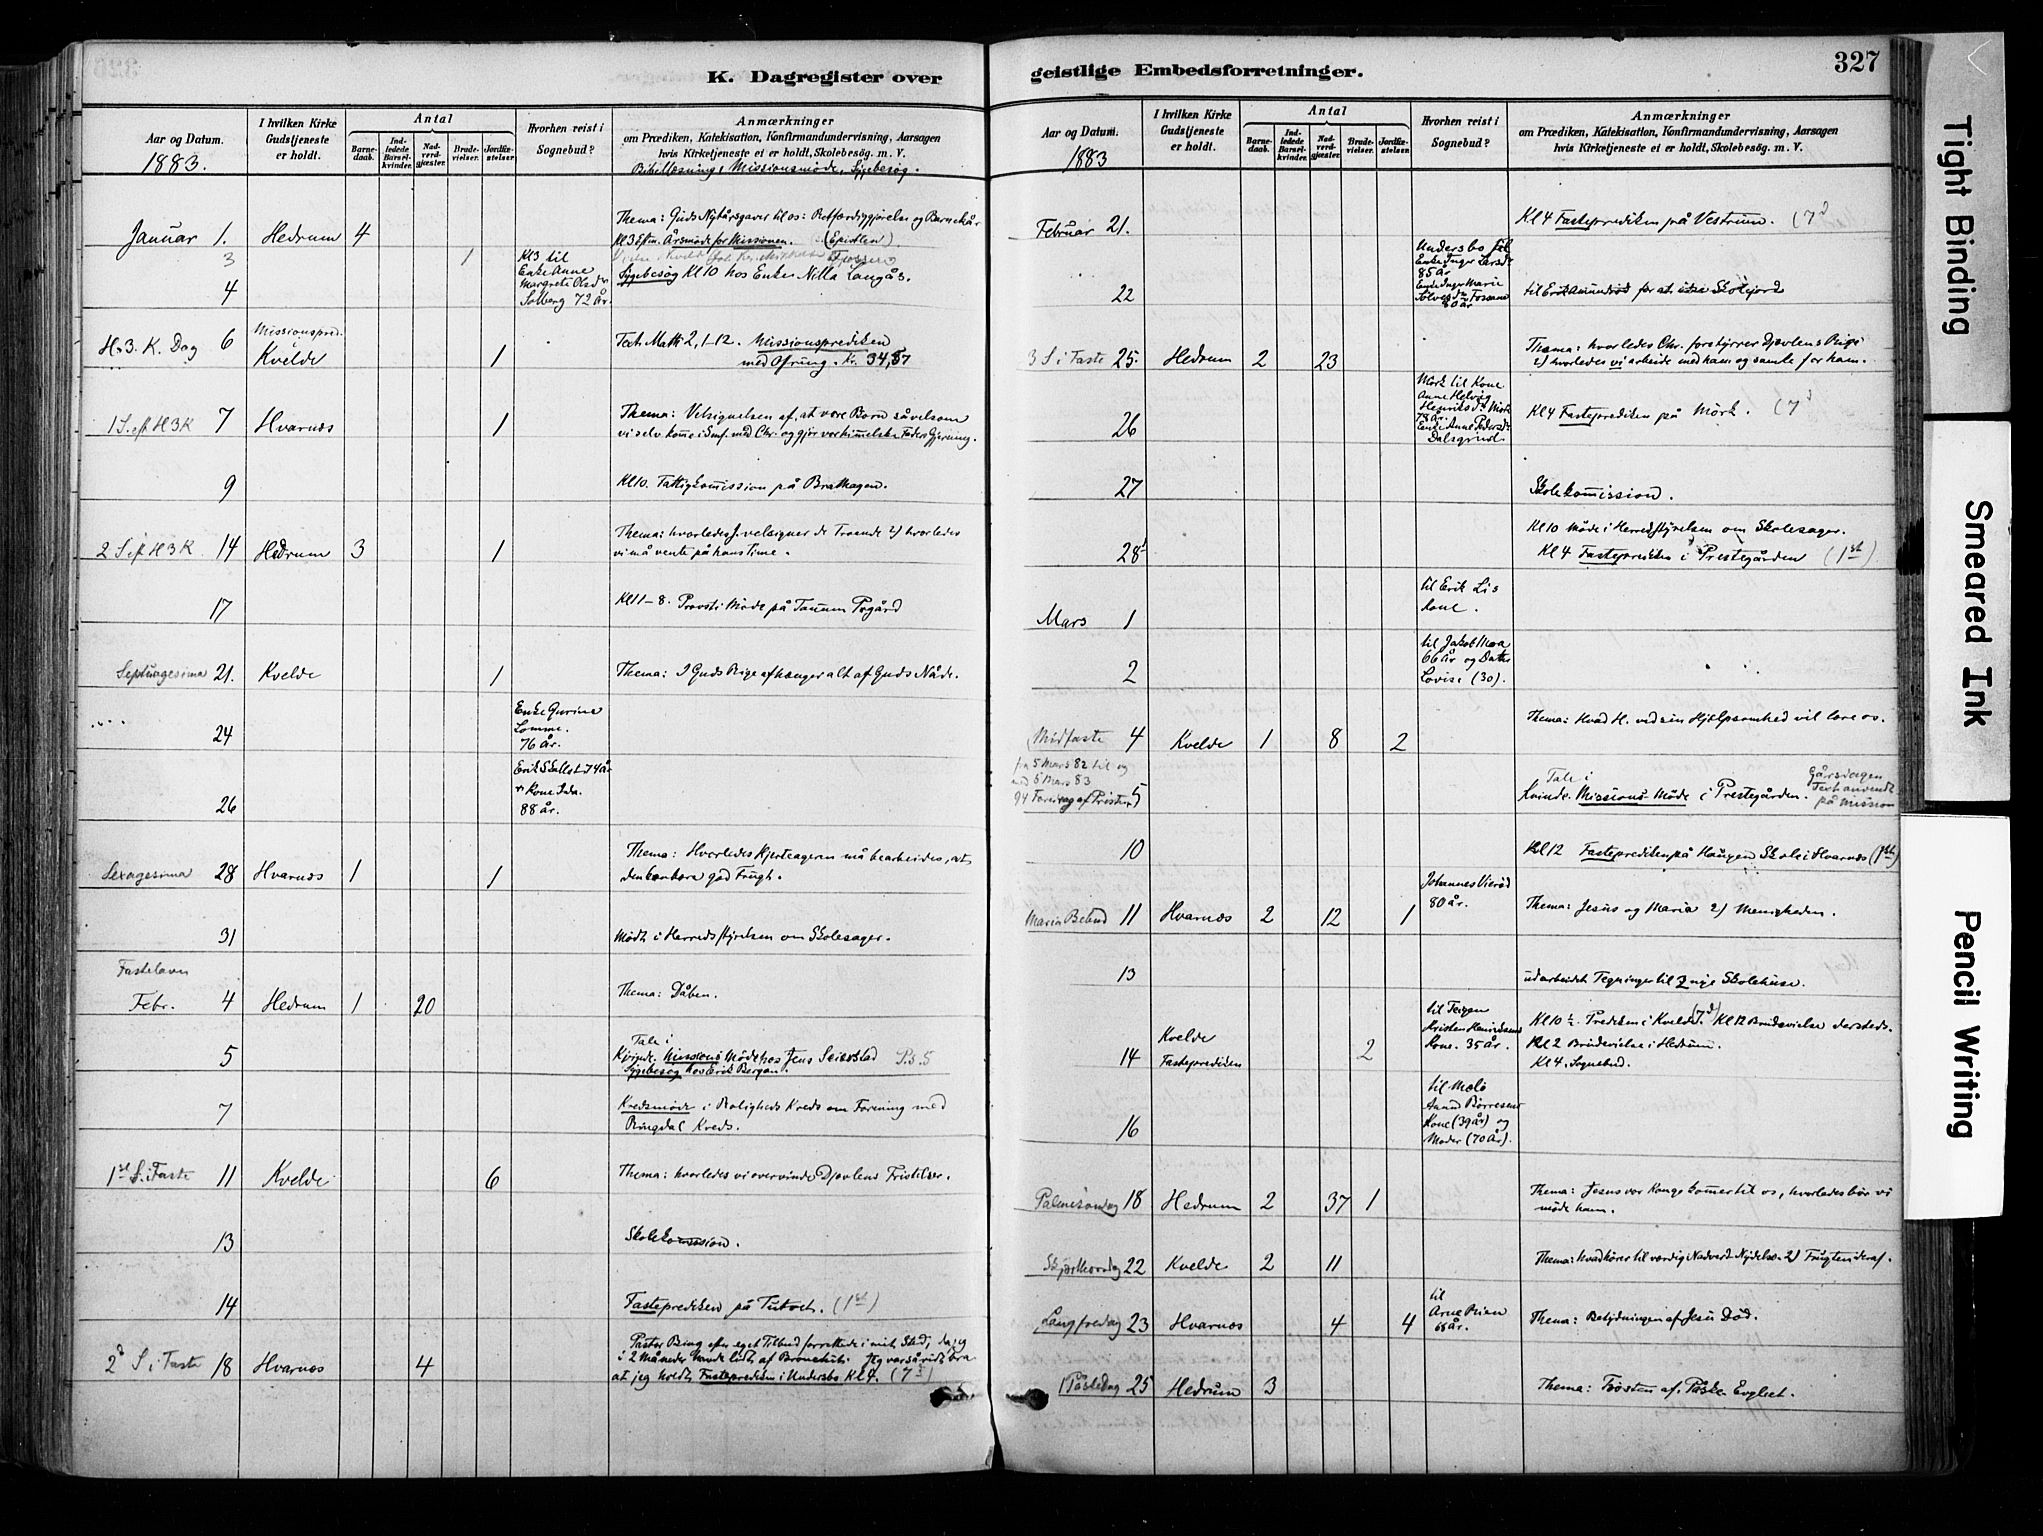 K. Dagregister over
Aar og Datum.
1883.
I hvilken Kirke
Gudstjeneste
er holdt.
Antal
Barne-
daab.
Ind-
ledede
Barsel-
kvinder.
Nad-
verd-
gjæster.
Brude-
vielser.
Jordfæ-
stelser.
Hvorhen reist i
Sognebud?
Anmærkninger
om Prædiken, Katekisation, Konfirmandundervisning, Aarsagen
hvis Kirketjeneste ei er holdt, Skolebesög. m. V.
Bibellæsning, Missionsmøde, Sygebesøg.
Januar 1. Hedrum 4 Thema: Guds Nytårsgaver til os: Retfærdiggjørelse og Barnekår
Kl 3 Eftm. Årsmøde for Missionen. (Epistlen)
3 1
4 Kl 3 til
Enke Anne
Margrete Olsdr
Solberg 72 År. Sygebesøg Kl 10 hos Enke Nilla Langås.
H. 3. K. Dag 6 Missionspred. i
Kvelde 1 Text Matth 2, 1-12. Missionsprediken
med Ofring. Kr. 34,57
1 S. eft H3K 7 Hvarnæs 1 Thema: Velsignelsen af, at vore Børn såvelsom
vi selv kome i Smf. med Chr. og gjør vor himmelske Faders Gjerning.
9 Kl 10. Fattigkomission på Brathagen.
2 S eft H3K 14 Hedrum 3 1 Thema: hvorledes J. velsigner de Troende 2) hvorledes
vi må vente på hans Time.
17 Kl 11-8. Provsti Møde på Tanum Prgård
Septuagesima 21. Kvelde 1 Thema: I Guds Rige afhænger alt af Guds Nåde.
24 Enke Gurine
Lomme.
76 år.
26 Erik Skallist 74 år
Kone Ida.
88 år.
Sexagesima 28 Hvarnæs 1 1 Thema: Hvorledes Hjerteageren må bearbeides, at
den kan bære god Frugt.
31 Mødt i Herredsstyrelsen om Skolesager.
Fastelavn
Febr. 4 Hedrum 1 20 Thema: Dåben.
5 Tale i
Kvinde. Missions Møde hos Jens Seierstad Ps. 5
Sygebesøg hos Erik Bergan.
7 Kredsmøde i Roligheds Kreds om Forening med
Ringdal Kreds.
1ste S. i Faste 11 Kvelde 6 Thema: hvorledes vi overvinde Djevlens Fristelser.
13 Skolekomission.
14 Fasteprediken på Tutvet. (1st)
2d S i Faste 18 Hvarnæs 4 Pastor Bing efter eget Tilbud forrettede i mit Sted, da jeg
i 2 Måneder havde lidt af Bronchit. Jeg var så vidt bra
at jeg holdt Fasteprediken i Undersbo Kl 4. (7d)
geistlige Embedsforretninger.
327
Aar og Datum.
1883
I hvilken Kirke
Gudstjeneste
er holdt.
Antal
Barne-
daab.
Ind-
ledede
Barsel-
kvinder.
Nad-
verd-
gjæster.
Brude-
vielser.
Jordfæ-
stelser.
Hvorhen reist i
Sognebud?
Anmærkninger
om Prædiken, Katekisation, Konfirmandundervisning, Aarsagen
hvis Kirketjeneste ei er holdt, Skolebesög. m. V.
Februar 21. Kl 4 Fasteprediken på Vestrum. (7d
22 Undersbo til
Enke Inger Larsdr
85 år
Enke Inger Marie
Fossane
80 år til Erik Amundrød for at
3 S i Faste 25. Hedrum 2 23 Thema: hvorledes Chr. forstyrrer Djevlens Rige
2) hvorledes vi arbeide med ham og samle for ham.
26 Mørk til Kone
Anne Helvig
Henriksdr Mørk
78 år.
Enke Anne Pedersdr
Dalsgrind. Kl 4 Fasteprediken på Mørk. (7d
27 Skolekomission.
28 Kl 10 Møde i Herredsstyrelsen om Skolesager.
Kl 4 Fasteprediken i Prestegården (1st)
Mars 1 til Erik Lis
Kone.
2 til Jakob Moa
66 år og Datter
Lovise (30).
Midfaste 4 Kvelde 1 8 2 Thema: Hvad H. ved sin Hjælpsomhed vil lære os.
fra 5 Mars 82 til og
med 5 Mars 83
94 Foredrag af Presten 5 Tale i
Kvinde. Missions-Møde i Prestegården. Gårsdagens
Text anvendt
på Mission
10 Kl 12 Fasteprediken på Haugen Skole i Hvarnæs (1ste)
Maria Bebud 11 Hvarnæs 2 12 1 Johannes Vierød
80 år. Thema: Jesus og Maria 2) Menigheden.
13 udarbeidet Tegninger til 2 nye Skolehuse.
14 Kvelde
Fasteprediken 2 til Teigen
Kristen Henriksens
Kone. 35 år. Kl 10 1/2 Prediken i Kvelde (7d) Kl 12 Brudevielse dersteds.
Kl 2 Brudevielse i Hedrum.
Kl 4. Sognebud.
16 til Melø
Anund Børresens
Kone (39 år) og
Moder (70 år).
Palmesøndag 18 Hedrum 2 37 1 Thema: Jesus vor Konge komer til os, hvorledes bør vi
møde ham.
Skjærthorsdag 22 Kvelde 2 11 Thema: Hvad hører til værdig Nadverd. Nydelse 2) Frugten deraf.
Langfredag 23 Hvarnæs 4 4 til
Arne Rien
68 år. Thema: Betydningen af Jesu Død.
1 Påskedag 25 Hedrum 3 Thema: Trøsten af Påske Evgliet.
Tight Binding
Smeared Ink
Pencil Writing